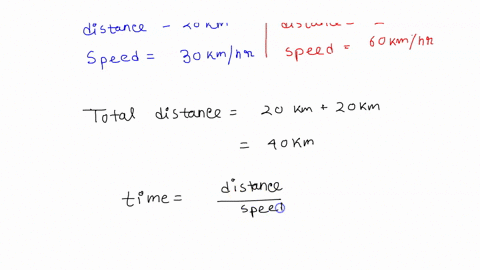 distance - 20 km
Speed = 30 km/hr
distance =
speed = 60 km/hr
Total distance = 20 km + 20 km
= 40 km
time = distance
speed